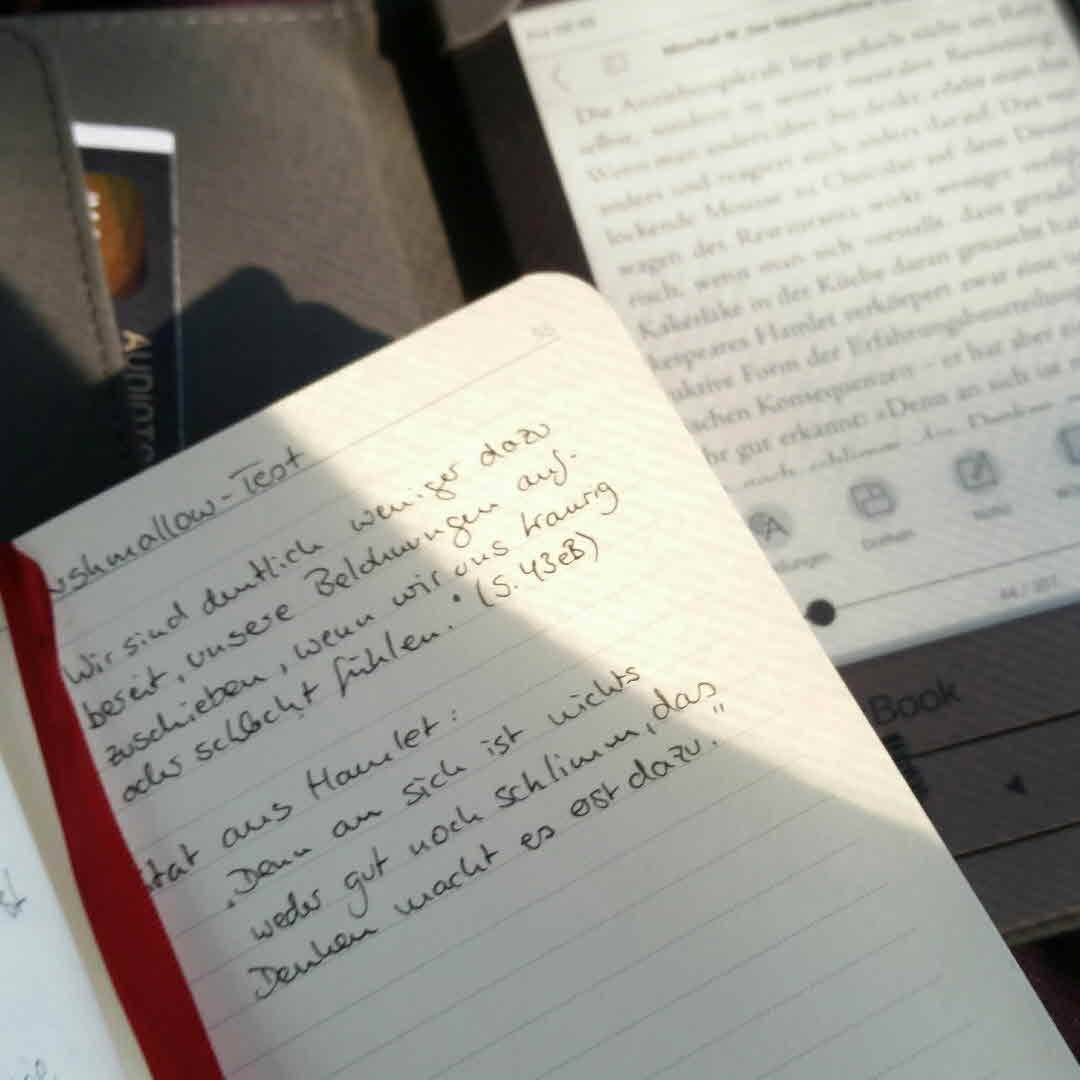 Marshmallow-Test
Wir sind deutlich weniger dazu
bereit, unsere Belohnungen auf-
zuschieben, wenn wir uns traurig
oder schlecht fühlen. (S. 43eB)
Zitat aus Hamlet:
„Denn an sich ist nichts
weder gut noch schlimm, das
Denken macht es erst dazu."
Die Anziehungskraft liegt jedoch nicht im Reiz
selbst, sondern in seiner mentalen Bewertung
Wenn man anders über ihn denkt, erlebt man ihn
anders und reagiert auch anders darauf. Das
lockende Mousse au Chocolat auf dem Dessert-
wagen des Restaurants wirkt weniger
risch, wenn man sich vorstellt, dass gerade
Kakerlake in der Küche daran genascht hat
kespeares Hamlet verkörpert zwar eine
uktive Form der Erfahrungsbeurteilung
schen Konsequenzen – er hat aber
hr gut erkannt: »Denn an sich ist
noch schlimm, das Denken
Drehen
Book